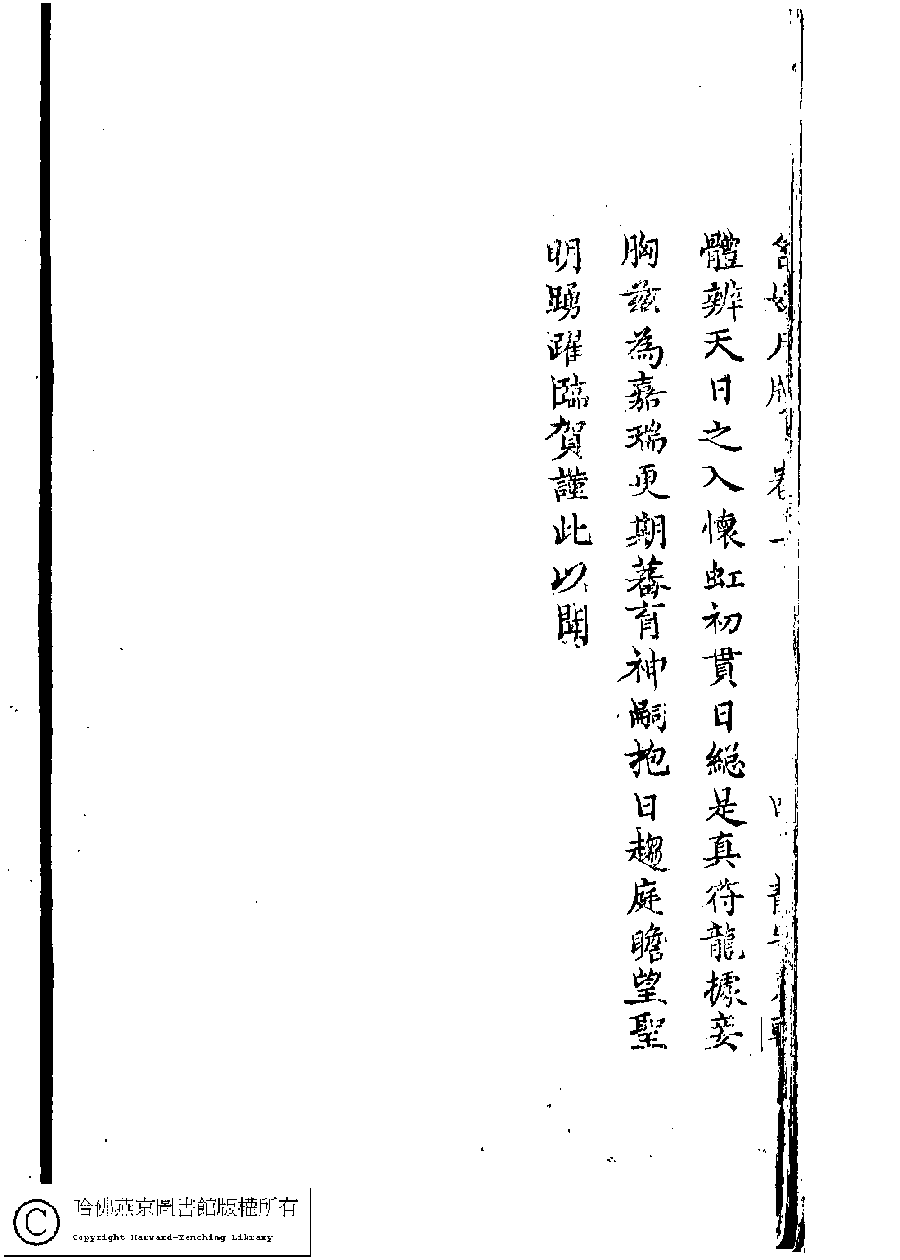 體辨天日之入懷虹初貫日總是真符龍據妾
胸茲為嘉瑞更期蕃育神嗣抱日趨庭瞻望聖
明踴躍臨賀謹此以聞
哈佛燕京圖書館版權所有
Copyright Harvard-Yenching Library